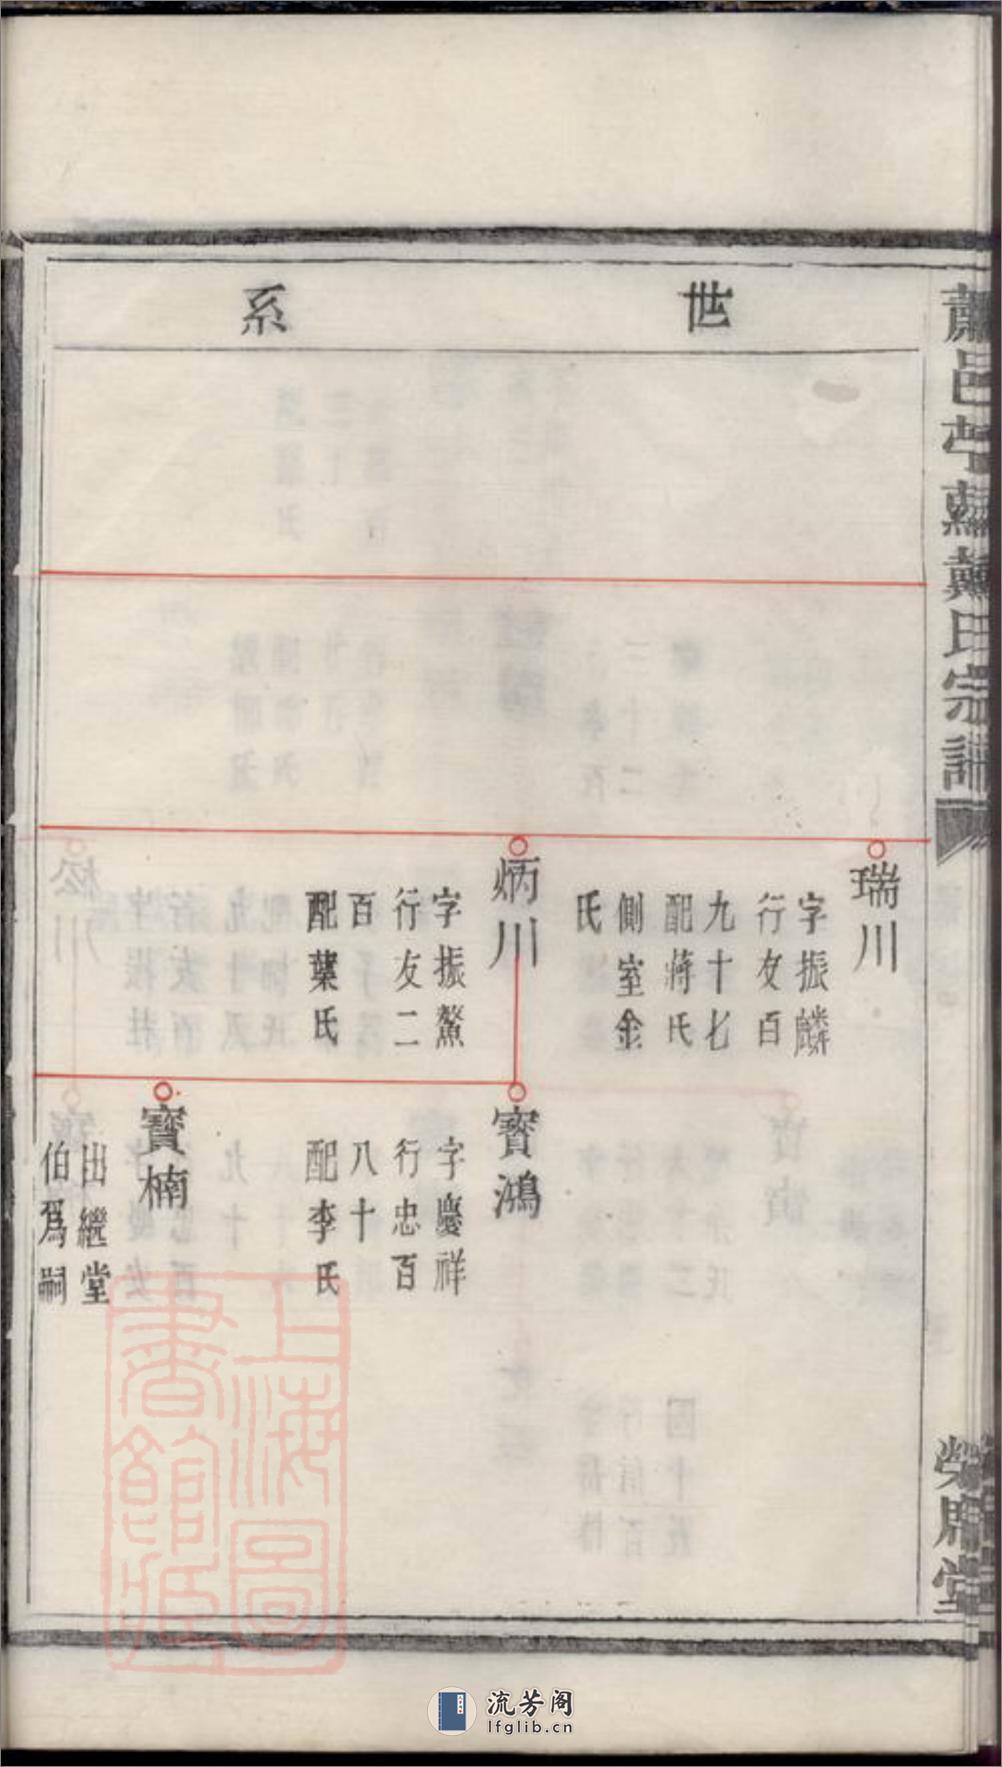 世系
瑞川
字振麟
行友百
九十七
配蔣氏
側室金
氏
炳川
字振鰲
行友二
百
配葉氏
寶鴻
字慶祥
行忠百
八十
配李氏
寶楠
出繼堂
伯爲嗣
戴氏宗譜
上海圖
書館藏
流芳阁
lfglib.cn